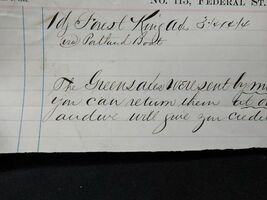 NO. 113, FEDERAL ST.
1 dz Forest King Ad. 3 4 4 4 4
via Portland Boat
The Green sales were sent by
you can return them
and we will give you credi